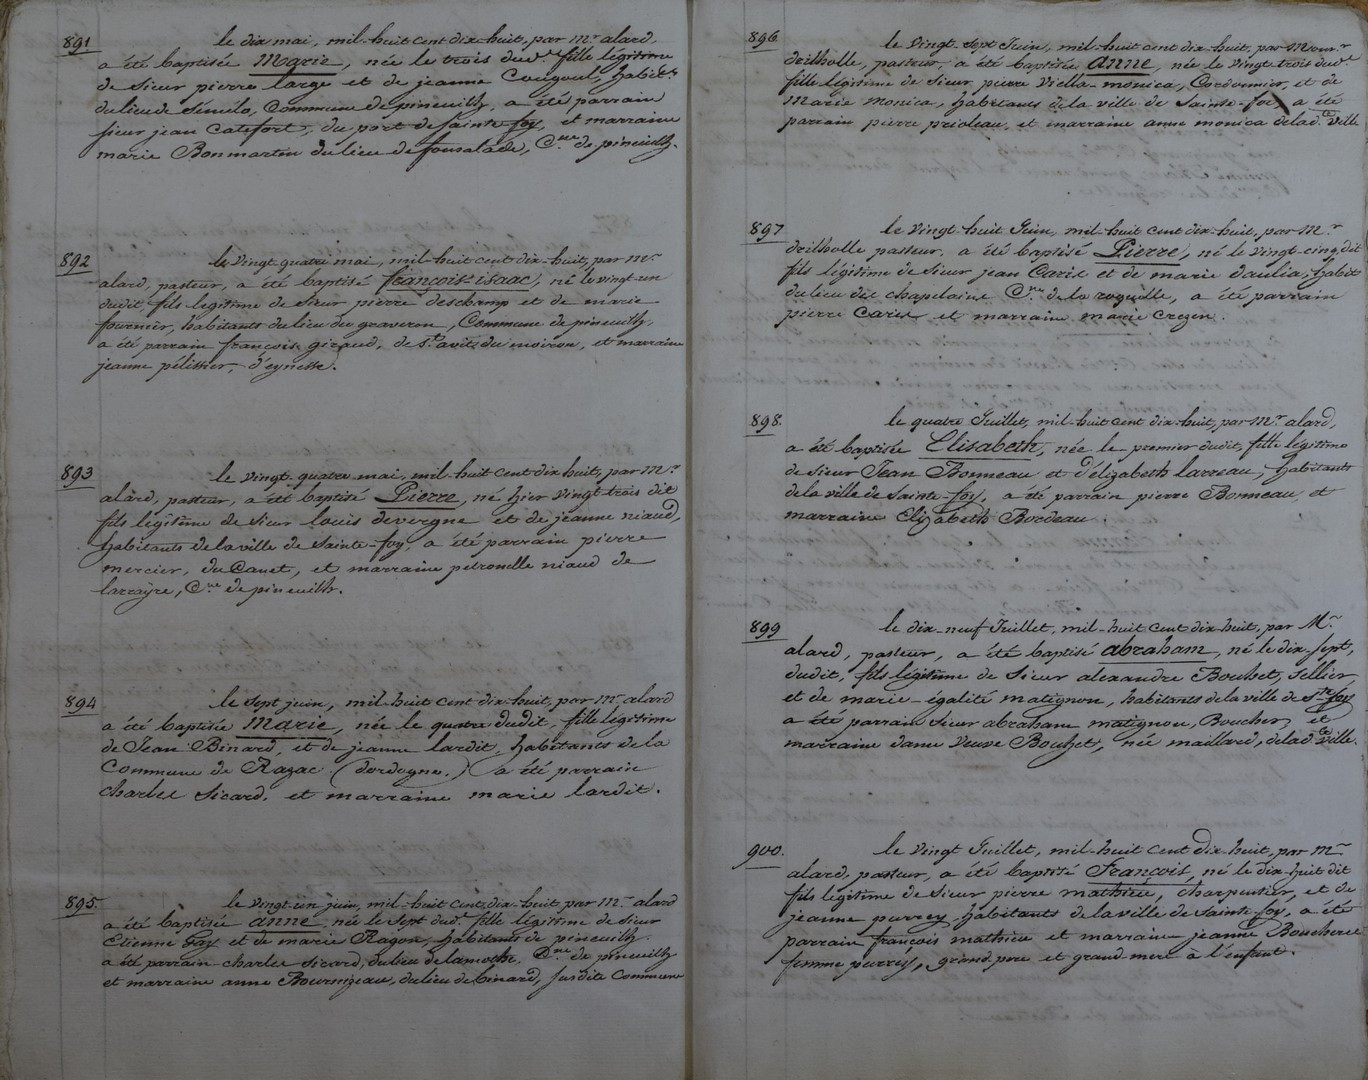 891
le dix mai, mil-huit cent dix-huit, par Mr. alard,
a été baptisée Marie, née le trois dud.t fille légitime
de Sieur pierre large et de jeanne Cougoul, habit.ts
du lieu de Similo, Commune de pineuilh, a été parrain
sieur jean Catefort, du port de Sainte-foy, et marraine
marie Bonmartin du lieu de fousalade, C.ne de pineuilh.
892
le Vingt-quatre mai, mil-huit cent dix-huit, par Mr.
alard, pasteur, a été baptisé françois-isaac, né le vingt-un
dudit, fils légitime de Sieur pierre deschamp et de marie
fournier, habitants du lieu du graveron, Commune de pineuilh,
a été parrain françois giraud, de S.t avit du moiron, et marraine
jeanne pélissier, d'eynesse.
893
le Vingt-quatre mai, mil-huit cent dix huit, par Mr.
alard, pasteur, a été baptisé Pierre, né hier vingt-trois dit
fils légitime de Sieur louis devergne et de jeanne niaud,
habitants de la ville de Sainte-foy, a été parrain pierre
mercier, du Canet, et marraine petronille niaud de
larrayre, C.ne de pineuilh.
894
le Sept juin, mil-huit cent dix-huit, par Mr. alard
a été baptisée Marie, née le quatre dudit, fille légitime
de Jean Binard, et de jeanne lardit, habitants de la
Commune de Razac (dordogne.) a été parrain
Charles Sicard, et marraine marie lardit.
895
le Vingt-un juin, mil-huit cent dix-huit par Mr. alard
a été baptisée anne, née le Sept dud.t fille légitime de Sieur
Etienne Fay et de marie Ragon, habitants de pineuilh
a été parrain charles Sicard, du lieu de lamothe, C.ne de pineuilh
et marraine anne Bournizeau, du lieu de binard, Susdite Commune
896
le Vingt-sept Juin, mil-huit cent dix-huit, par Monsr.
drilholle, pasteur, a été baptisée anne, née le Vingt trois dud.t
fille légitime de Sieur pierre Viella-monica, Cordonnier, et de
Marie monica, habitants de la ville de Sainte-foy, a été
parrain pierre prioleau, et marraine anne monica de lad.e Ville
897
le Vingt-huit Juin, mil-huit cent dix-huit, par Mr.
drilholle pasteur, a été baptisé Pierre, né le Vingt cinq dit
fils légitime de Sieur jean Carié et de marie daulia, habit.
du lieu dit chapelaine C.ne de la roquille, a été parrain
pierre Carié et marraine marie Crezen.
898.
le quatre Juillet, mil-huit cent dix-huit, par Mr. alard,
a été baptisée Elisabeth, née le premier dudit, fille légitime
de Sieur Jean Bonneau et d'élizabeth larreau, habitants
de la ville de Sainte-foy, a été parrain pierre Bonneau, et
marraine Elizabeth Bordeau.
899
le dix-neuf Juillet, mil-huit cent dix-huit, par Mr.
alard, pasteur, a été baptisé abraham, né le dix-sept,
dudit, fils légitime de Sieur alexandre Bouhet, Sellier,
et de marie-égalité matignon, habitants de la ville de Ste. foy
a été parrain Sieur abraham matignon, Boucher, et
marraine dame Veuve Bouhet, née maillard, de lad.e Ville.
900.
le Vingt Juillet, mil-huit cent Dix-huit, par Mr.
alard, pasteur, a été baptisé François, né le dix-huit dit
fils légitime de Sieur pierre mathieu, charpentier, et de
jeanne purrey, habitants de la ville de Sainte-foy, a été
parrain françois mathieu et marraine jeanne Boucherie
femme purrey, grand-pere et grand-mere à l'enfant.